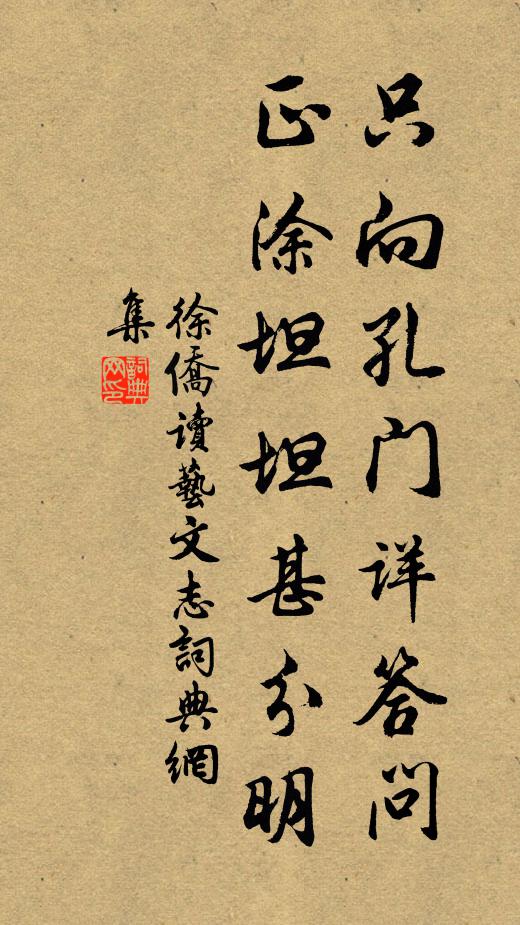 只向孔门详答问
正涂坦坦甚分明
徐僑讀藝文志詞典網
集
詞典
网印